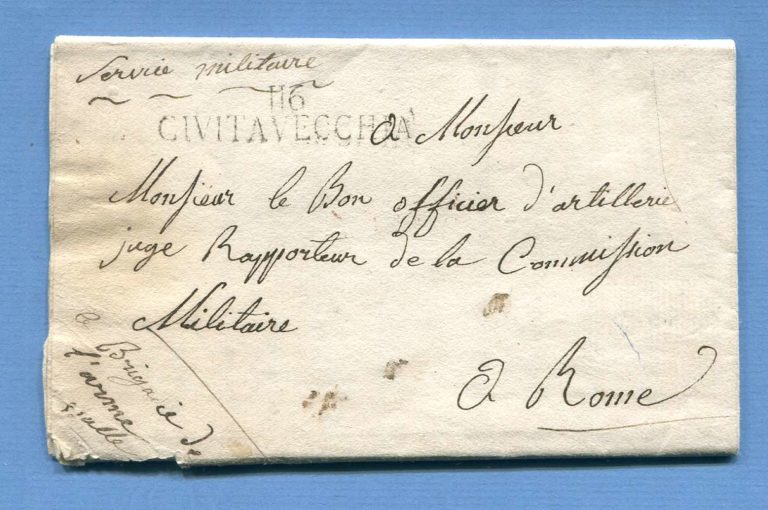 Service militaire
116
CIVITAVECCHIA
a Monsieur
Monsieur le Bon officier d'artillerie
juge Rapporteur de la Commission
Militaire
a Rome
de
l'arme